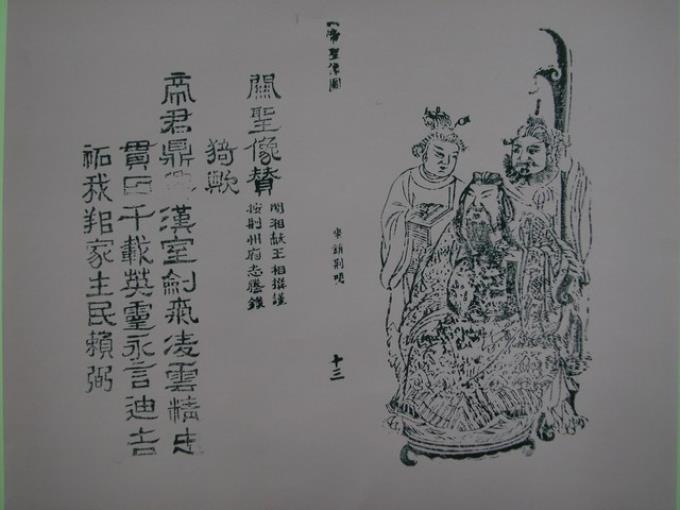 帝聖像圖
十三
關聖像贊
湘献王相撰謹
按荆州府志謄錄
猗歟
帝君鼎漢室劍氣凌雲精忠
貫日千載英靈永言迪吉
祐我家主民賴弼